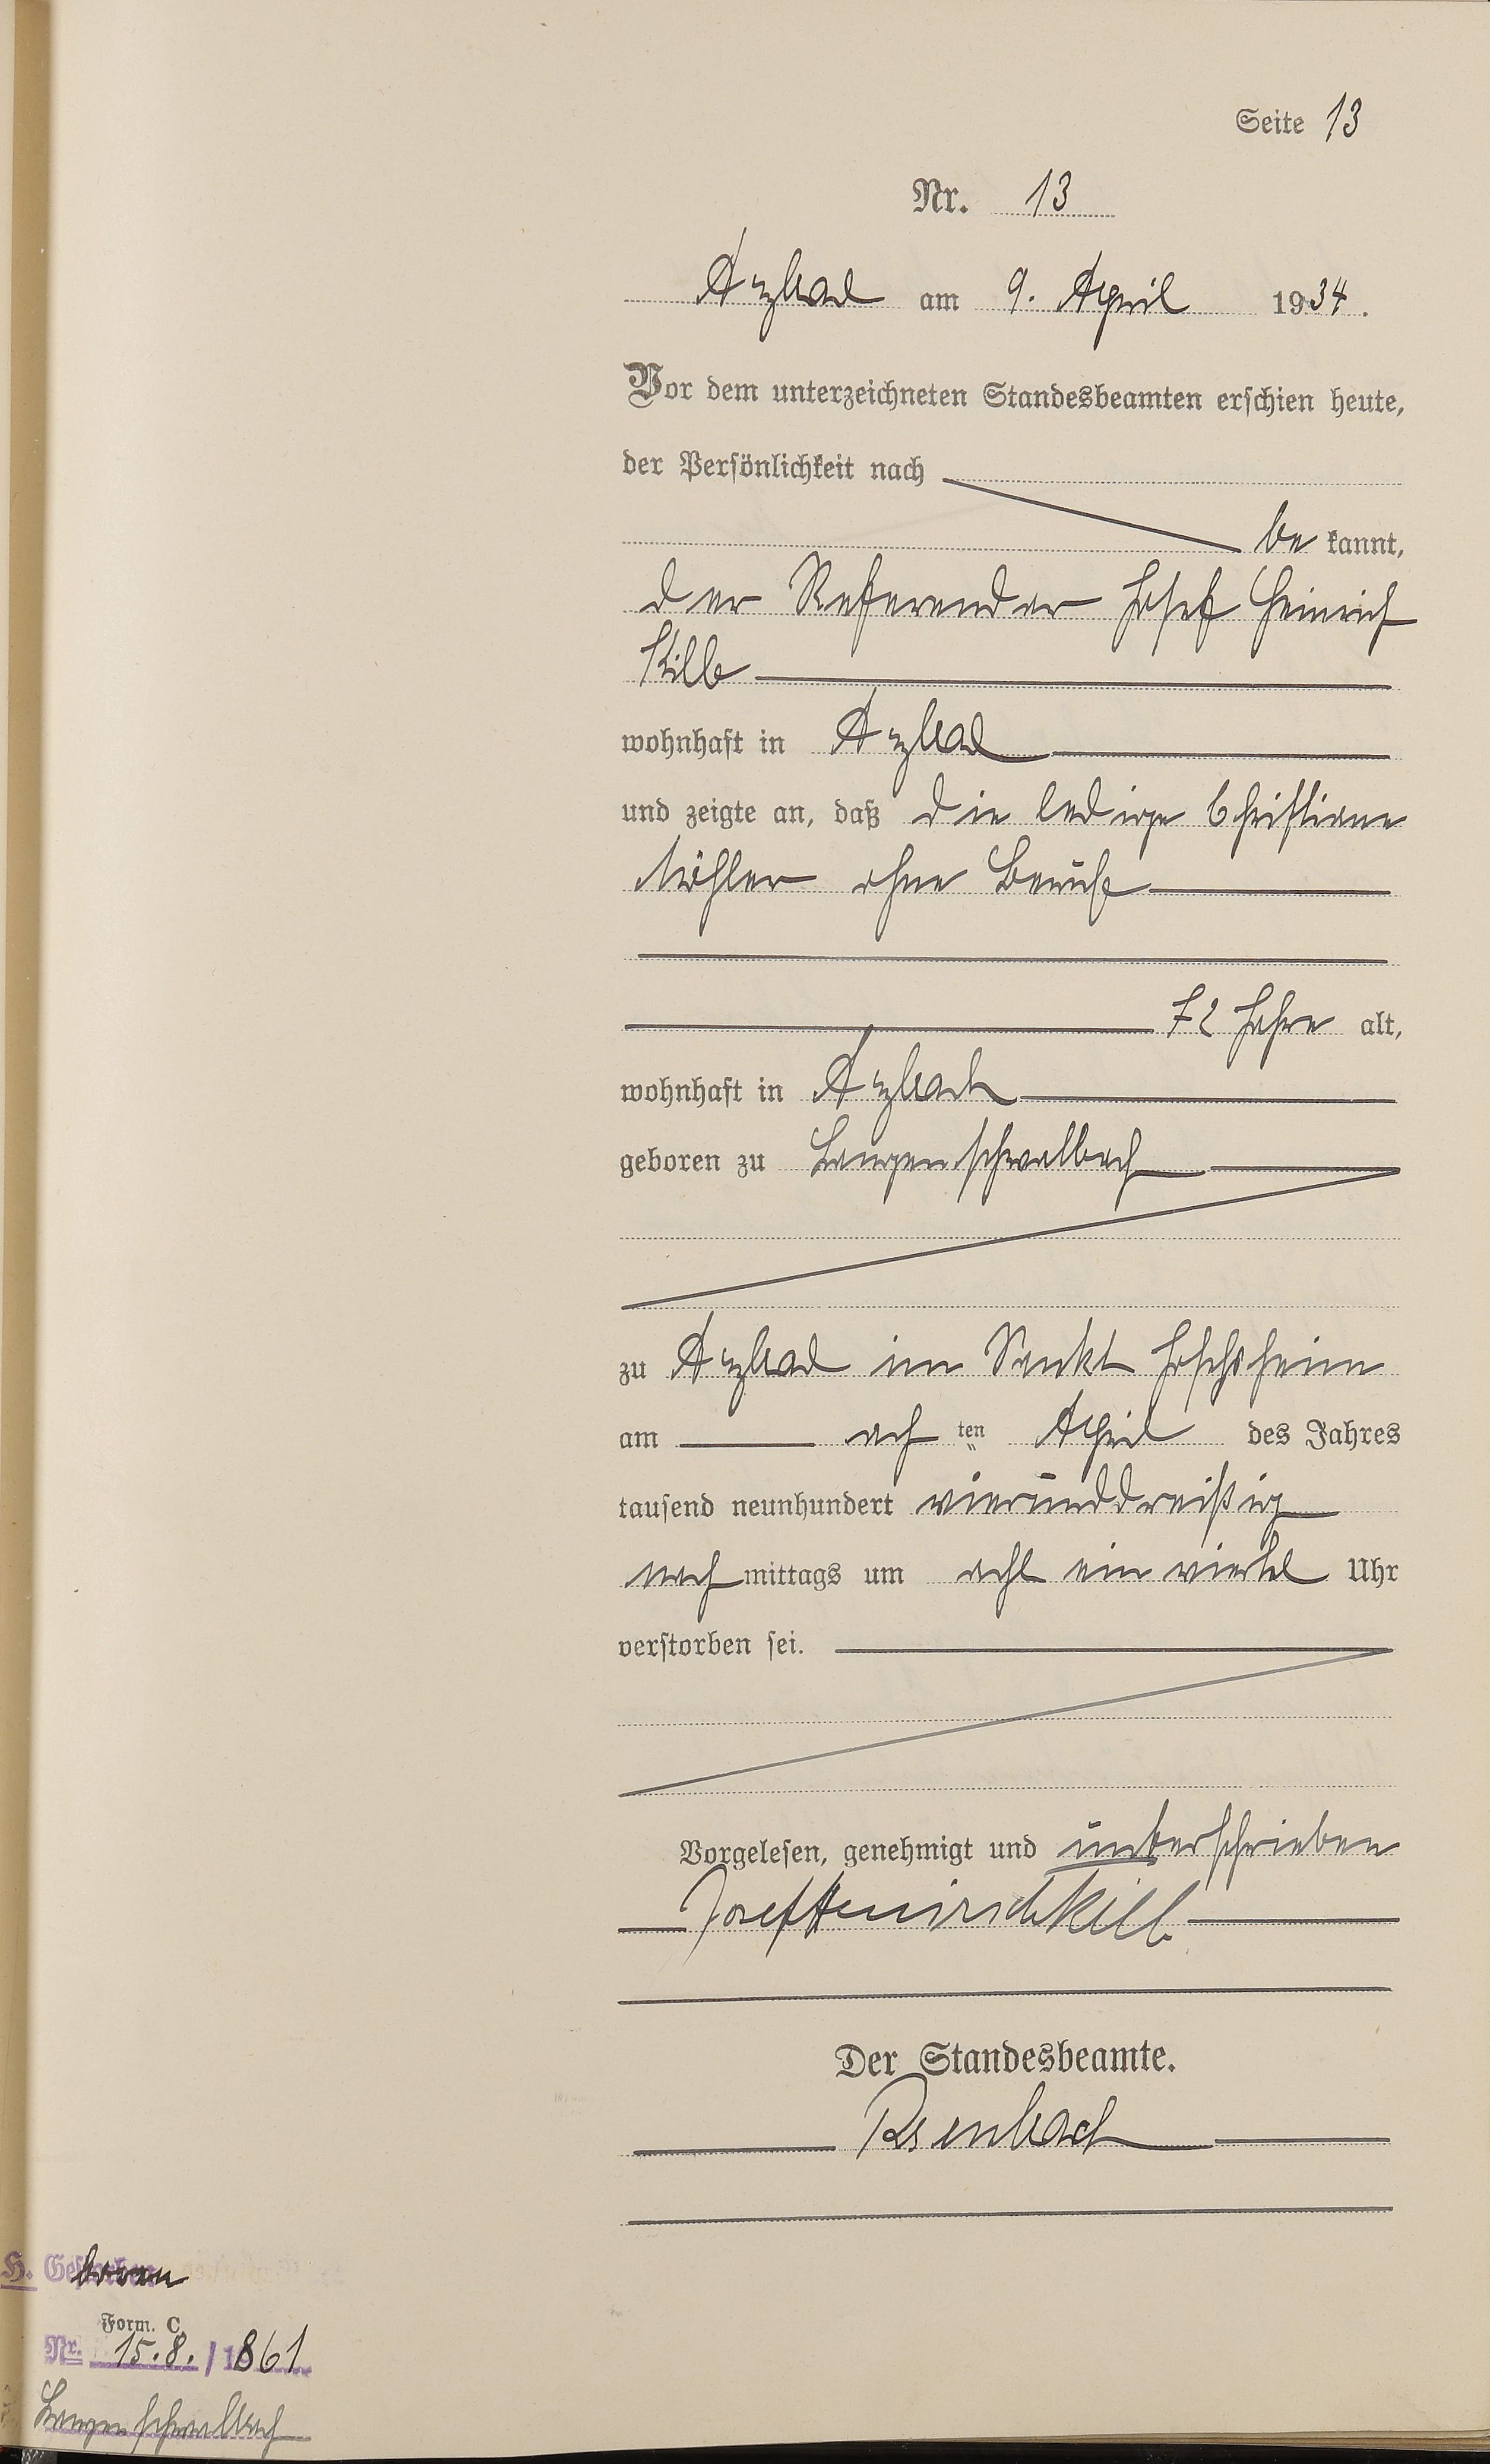 Seite 13
Nr. 13
Arzbach am 9. April 1934.
Vor dem unterzeichneten Standesbeamten erschien heute,
der Persönlichkeit nach
be kannt,
der Referendar Josef Heinrich
Kilb
wohnhaft in Arzbach
und zeigte an, daß die ledige Christiane
Möhler ohne Beruf
72 Jahre alt,
wohnhaft in Arzbach
geboren zu Langenschwalbach
zu Arzbach im Sankt Josefsheim
am ach ten April des Jahres
tausend neunhundert vierunddreißig
nach mittags um acht ein viertel Uhr
verstorben sei.
Vorgelesen, genehmigt und unterschrieben
Josef Heinrich Kilb
Der Standesbeamte.
H. Gestorben
Form. C.
Nr. 15.8. / 1861
Langenschwalbach